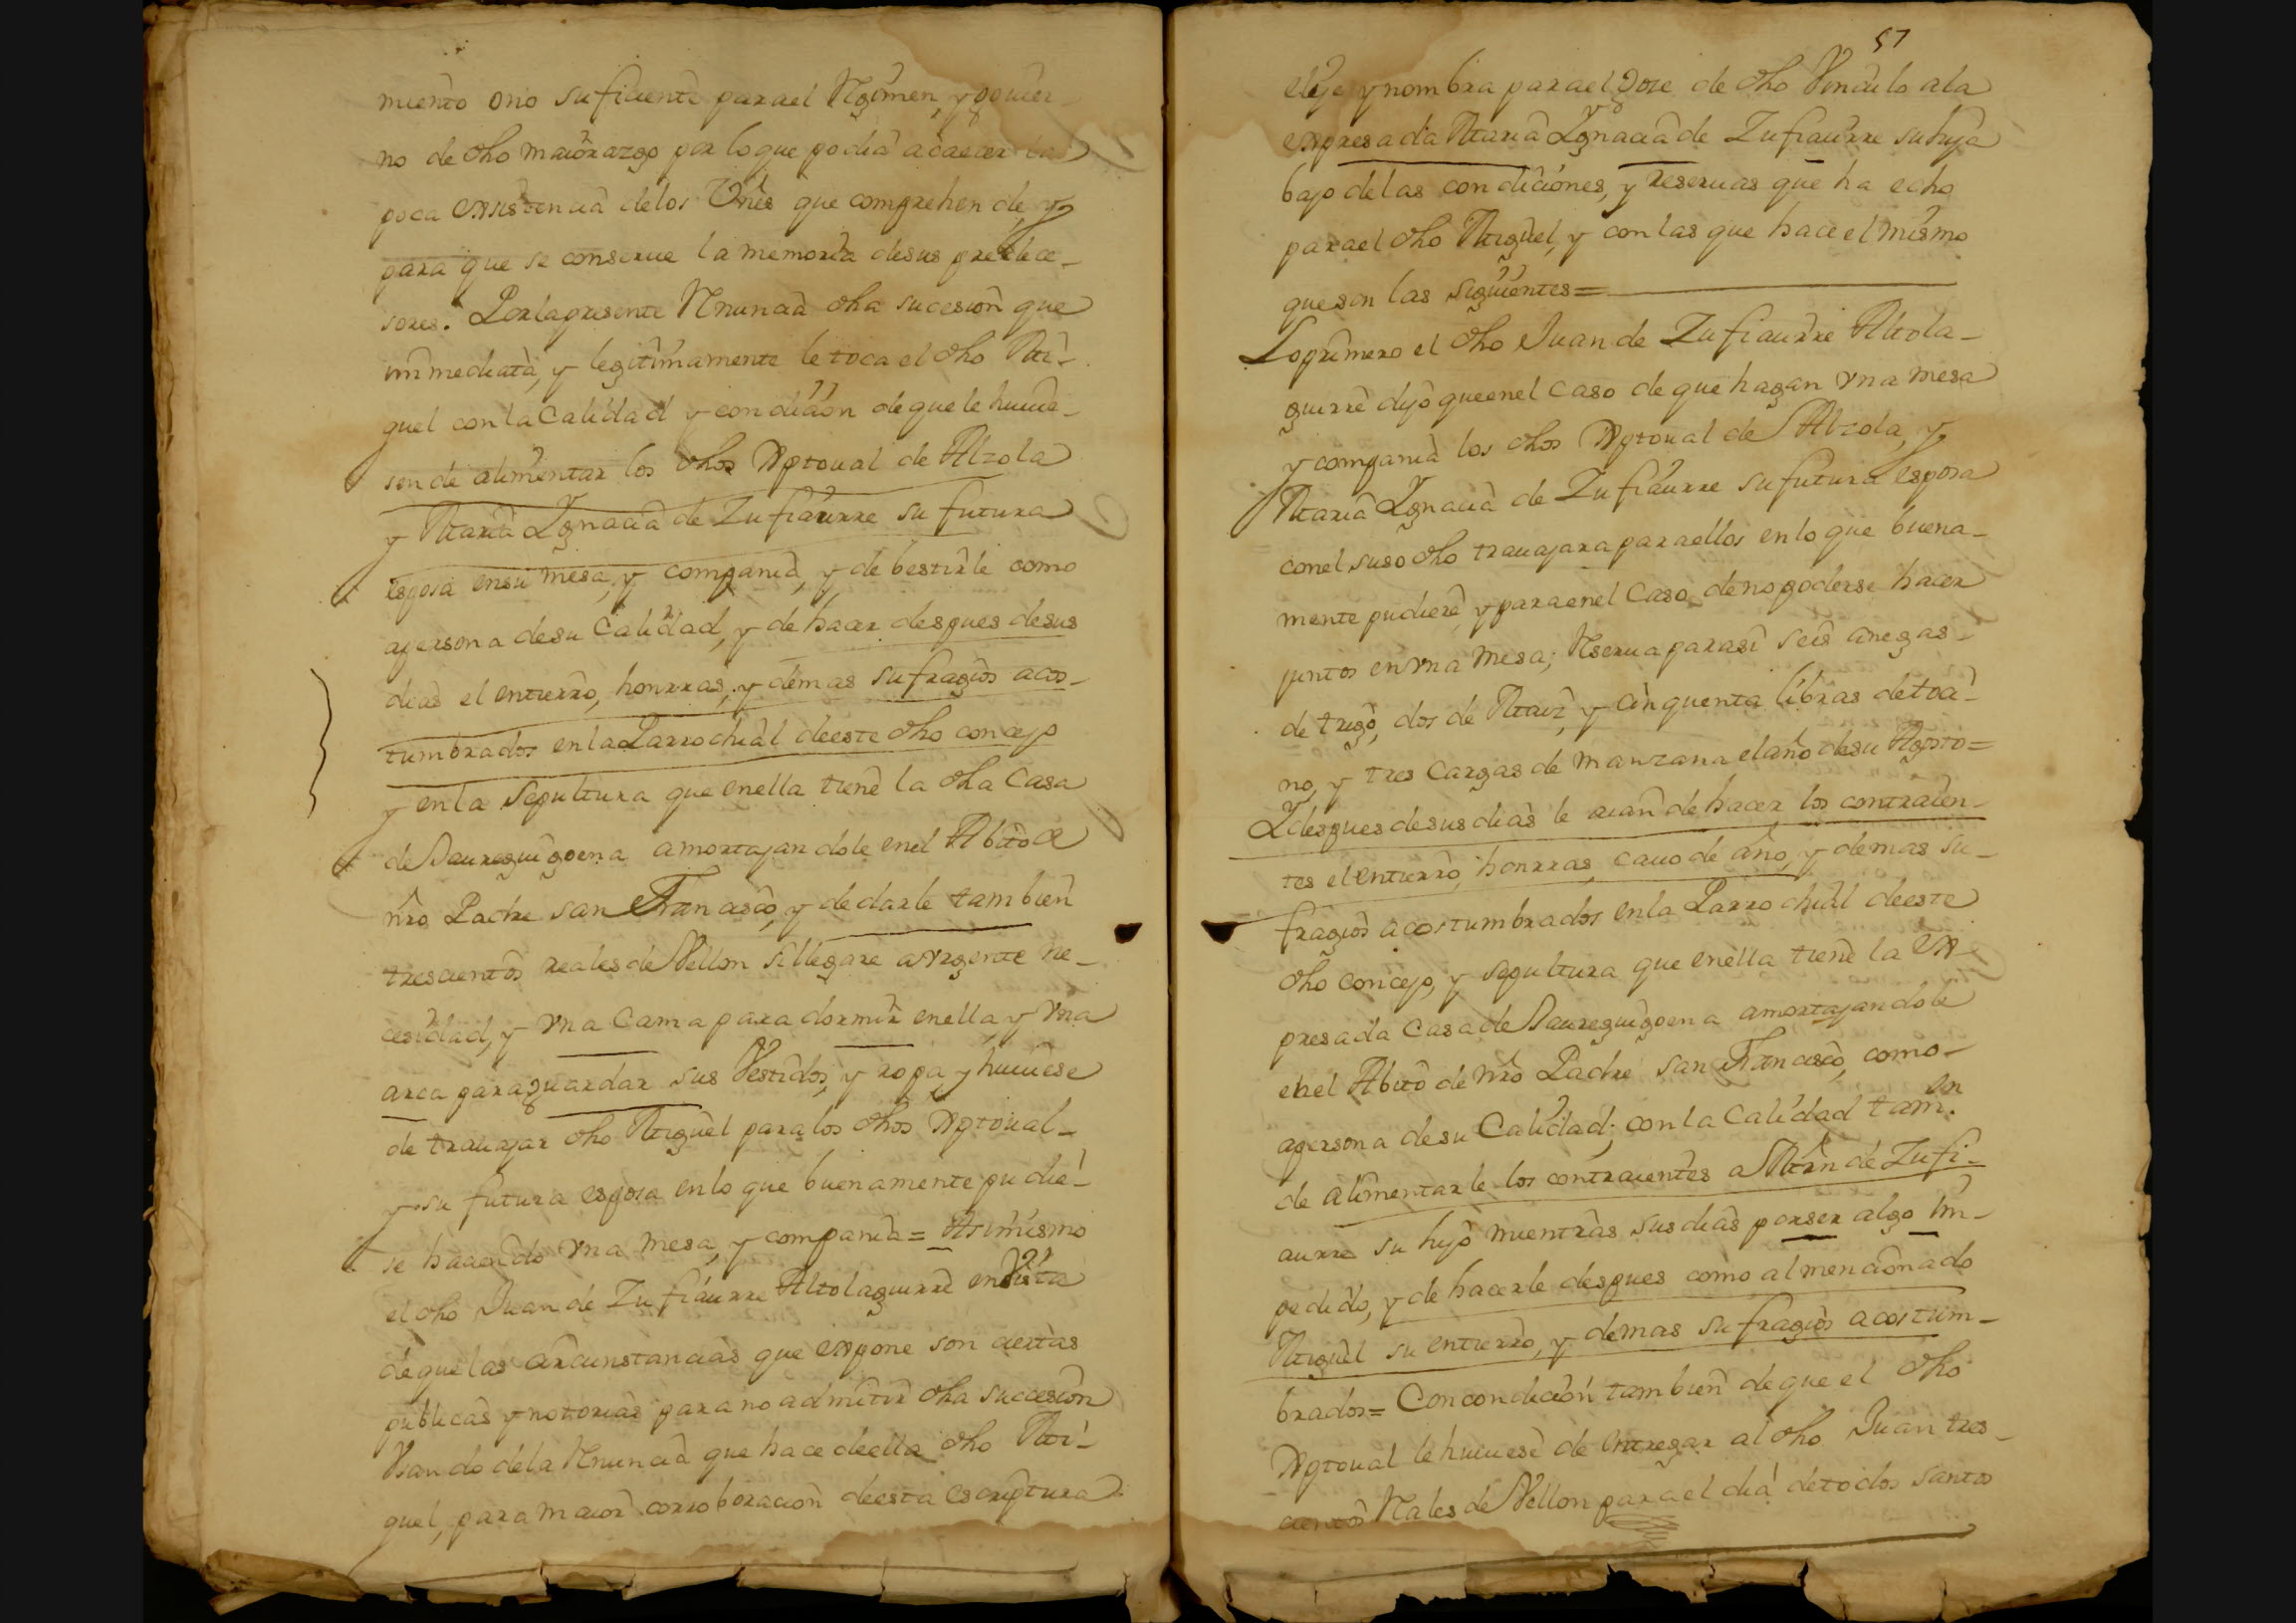 miento ono suficiente parael Regimen, y govier
no de dho maiorazgo por loque podia acaecer la
poca existencia delos Vnes que comprehende, y
para que se conserue la memoria desus predece-
sores. Porlapresente Renuncia dha sucesion que
immediata, y legitimamente le toca el dho Mi-
guel conla Calidad y condicion de que le huuie-
sen de alimentar los dhos Xptoual de Alzola
y Maria Ygnacia de Zufiaurre su futura
esposa ensu mesa, y compania, y de bestirle como
apersona desu Calidad, y de hacer despues desus
dias el entierro, honrras, y demas sufragios acos-
tumbrados enla Parrochial deeste dho concejo
y enla Sepultura que enella tiene la dha Casa
de Jaureguigoena amortajandole enel Abito de
nro Padre san Francisco, y dedarle tambien
trescientos reales de Vellon si llegare a vrgente ne-
cesidad, y vna Cama para dormir enella, y vna
arca para guardar sus Vestidos, y ropa, y huuiese
de trauajar dho Miguel para los dhos Xptoual-
y su futura esposa enlo que buenamente pudie-
se haciendo vna mesa, y compania= Asimismo
el dho Juan de Zufiaurre Altolaguirre en Vista
de que las circunstancias que expone son ciertas
publicas y notorias para no admitir dha succesion
Vsando dela Renuncia que hace deella dho Mi-
guel, para maior corroboracion deesta escriptura
57
elije y nombra para el Goze de dho Vinculo ala
expresada Maria Ygnacia de Zufiaurre su hija
bajo delas condiciones, y reseruas que ha echo
parael dho Miguel, y con las que hace el mismo
queson las siguientes=
Loprimero el dho Juan de Zufiaurre Altola-
guirre dijo queenel caso de que hagan vna mesa
y compania los dhos Xptoual de Alzola, y
Maria Ygnacia de Zufiaurre su futura esposa
conel suso dho trauajara paraellos enlo que buena-
mente pudiere, y paraenel Caso denopoderse hacer
juntos en vna Mesa; Reserua parasi seis anegas
de trigo, dos de Maiz, y cinquenta libras detoci-
no, y tres Cargas de manzana elaño desu Agosto=
Ydespues desus dias le aian de hacer los contraien-
tes el entierro, honrras, cauo de año, y demas su-
fragios acostumbrados enla Parrochial deeste
dho concejo, y sepultura que enella tiene la Ex-
presada Casa de Jaureguigoena amortajandole
enel Abito de nro Padre san Francisco, como
apersona desu Calidad; con la Calidad tam.en
de alimentarle los contraientes a Mrn de Zufi-
aurre su hijo mientras sus dias porser algo Im-
pedido, y de hacerle despues como al mencionado
Miguel su entierro, y demas sufragios acostum-
brados= Concondicion tambien de que el dho
Xptoual le huuiese de entregar al dho Juan tres-
cientos Rales de Vellon parael dia detodos santos